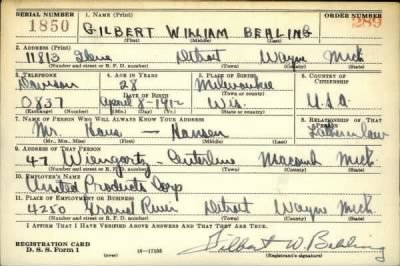 SERIAL NUMBER 1. NAME (Print) ORDER NUMBER
1850 GILBERT WILLIAM BEHLING 289
(First) (Middle) (Last)
2. ADDRESS (Print)
11813 Detroit Wayne Mich
(Number and street or R. F. D. number) (Town) (County) (State)
3. TELEPHONE 4. AGE IN YEARS 5. PLACE OF BIRTH 6. COUNTRY OF CITIZENSHIP
Davison 28 Milwaukee
(Town or county)
0837 April 8-1912 Wis. U.S.A
(Exchange) (Number) (Mo.) (Day) (Yr.) (State or country)
7. NAME OF PERSON WHO WILL ALWAYS KNOW YOUR ADDRESS 8. RELATIONSHIP OF THAT PERSON
Mr. Hans — Hansen Father in law
(Mr., Mrs., Miss) (First) (Middle) (Last)
9. ADDRESS OF THAT PERSON
47 Centerline Macomb Mich.
(Number and street or R. F. D. number) (Town) (County) (State)
10. EMPLOYER'S NAME
United Products Corp
11. PLACE OF EMPLOYMENT OR BUSINESS
4250 Grand River Detroit Wayne Mich.
(Number and street or R. F. D. number) (Town) (County) (State)
I AFFIRM THAT I HAVE VERIFIED ABOVE ANSWERS AND THAT THEY ARE TRUE.
REGISTRATION CARD
D. S. S. Form 1 16—17105 Gilbert W Behling
(Registrant's signature)